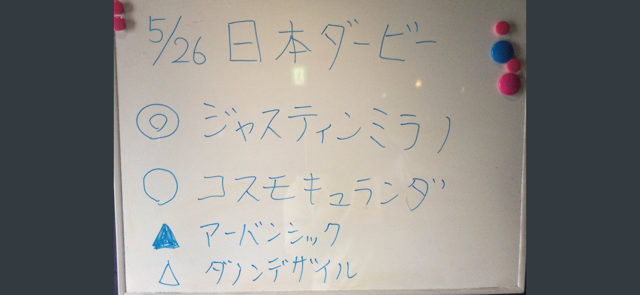 5/26 日本ダービー
◎ ジャスティンミラノ
○ コスモキュランダ
▲ アーバンシック
△ ダノンデザイル